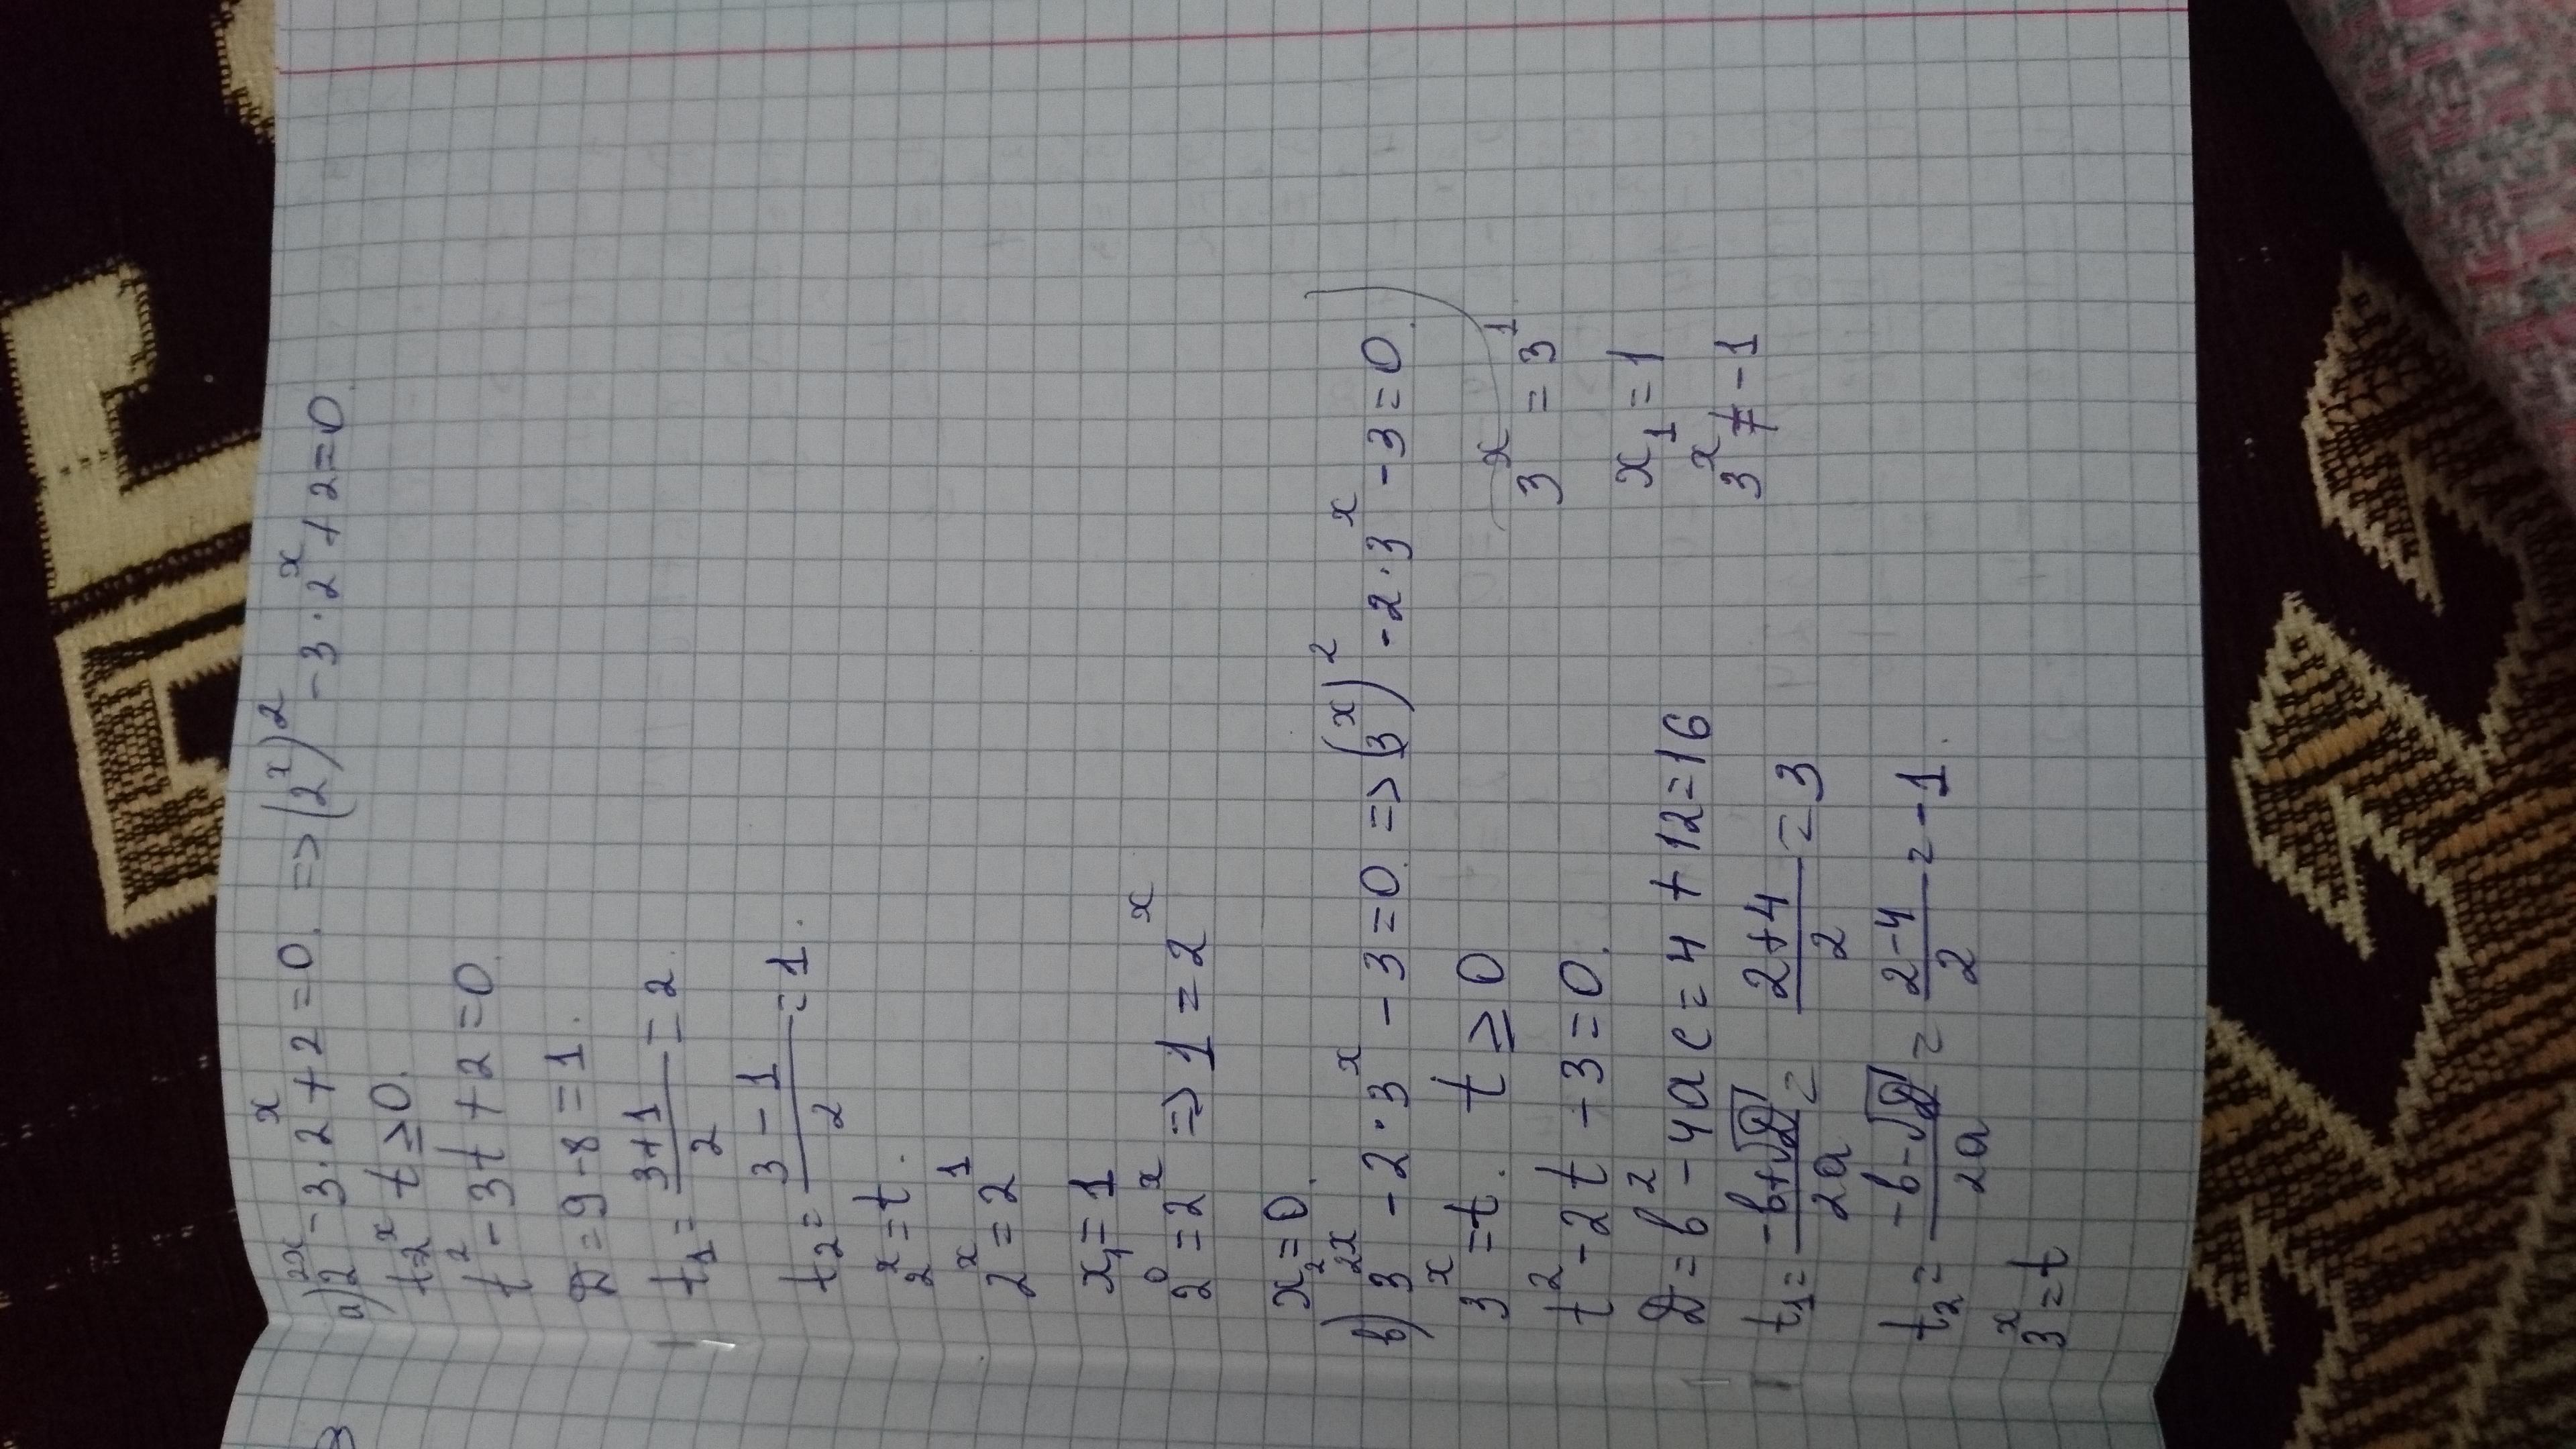 а) 2^2x - 3·2^x + 2 = 0. => (2^x)^2 - 3·2^x + 2 = 0.
t=2^x t ≥ 0.
t^2 - 3t + 2 = 0.
D = 9 - 8 = 1.
t_1 = (3+1)/2 = 2.
t_2 = (3-1)/2 = 1.
2^x = t.
2^x = 2^1
x_1 = 1
2^0 = 2^x => 1 = 2^x
x_2 = 0.
в) 3^2x - 2·3^x - 3 = 0. => (3^x)^2 - 2·3^x - 3 = 0.
3^x = t. t ≥ 0
t^2 - 2t - 3 = 0.
D = b^2 - 4ac = 4 + 12 = 16
t_1 = (-b+√D)/2a = (2+4)/2 = 3
t_2 = (-b-√D)/2a = (2-4)/2 = -1.
3^x = t
3^x = 3^1
x_1 = 1
3^x ≠ -1